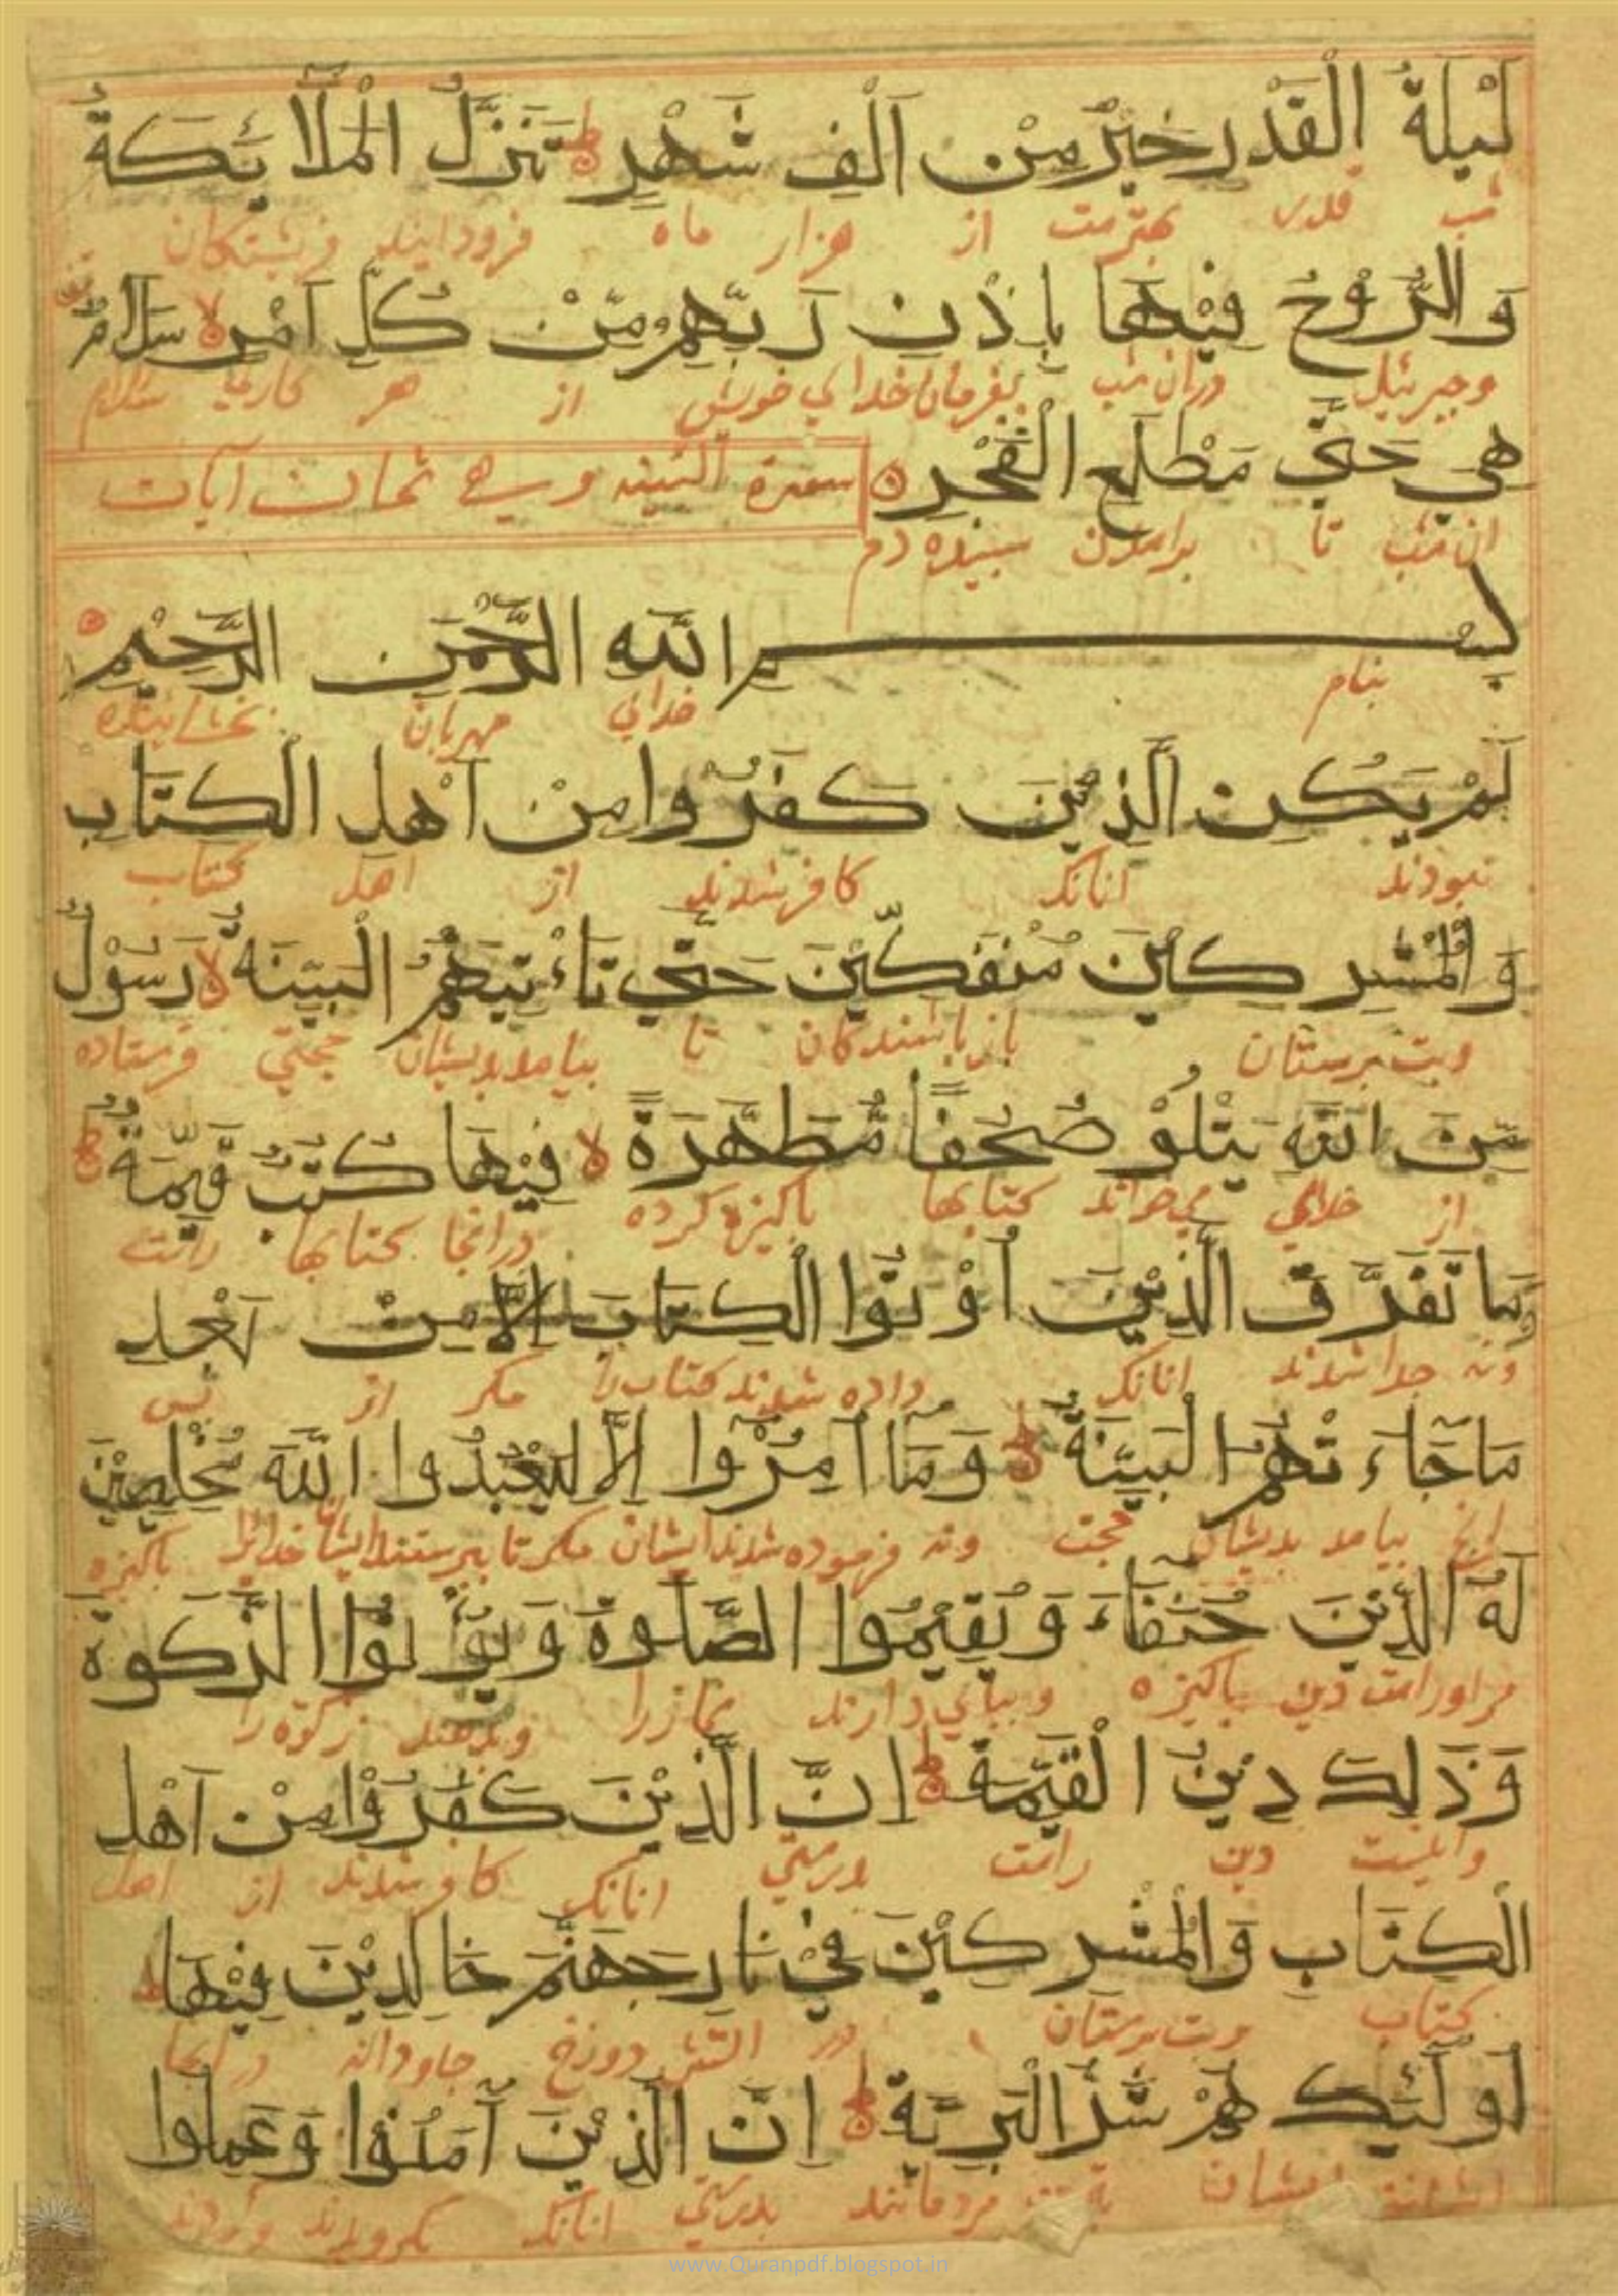 لَيْلَةُ الْقَدْرِ خَيْرٌ مِنْ اَلْفِ شَهْرٍ ط تَنَزَّلُ الْمَلَآئِكَةُ
شب قدر بهترست از هزار ماه فرودایند فریشتکان
وَالرُّوْحُ فِيْهَا بِاِذْنِ رَبِّهِمْ مِّنْ كُلِّ اَمْرٍ لا سَلَامٌ
وجبرئیل دران شب بفرمان خدای خویش از هر کاری سلام
هِيَ حَتّٰى مَطْلَعِ الْفَجْرِ
سورة البینه وهي ثمان آیات
ان شب تا برامدن سپیده دم
بِسْمِ اللّٰهِ الرَّحْمٰنِ الرَّحِيْمِ
بنام خدای مهربان بخشاینده
لَمْ يَكُنِ الَّذِيْنَ كَفَرُوْا مِنْ اَهْلِ الْكِتَابِ
نبودند انانک کافر شدند از اهل کتاب
وَالْمُشْرِكِيْنَ مُنْفَكِّيْنَ حَتّٰى تَاْتِيَهُمُ الْبَيِّنَةُ لا رَسُوْلٌ
وبت پرستان باز باشندکان تا بیامد بدیشان حجتی فرستاده
مِّنَ اللّٰهِ يَتْلُوْ صُحُفًا مُّطَهَّرَةً لا فِيْهَا كُتُبٌ قَيِّمَةٌ ط
از خدای می خواند کتابها پاکیزه کرده درانجا کتابها راست
وَمَا تَفَرَّقَ الَّذِيْنَ اُوْتُوا الْكِتَابَ اِلَّا مِنْ بَعْدِ
ونه جدا شدند انانک داده شدند کتاب را مکر از پس
مَا جَآءَتْهُمُ الْبَيِّنَةُ ط وَمَآ اُمِرُوْا اِلَّا لِيَعْبُدُوا اللّٰهَ مُخْلِصِيْنَ
انچ بیامد بدیشان حجت ونه فرموده شدند ایشان مکر تا بپرستند خدایرا پاکیزه
لَهُ الدِّيْنَ حُنَفَآءَ وَيُقِيْمُوا الصَّلٰوةَ وَيُؤْتُوا الزَّكٰوةَ
مراورا دین پاکیزه وبپای دارند نمازرا وبدهند زکوة را
وَذٰلِكَ دِيْنُ الْقَيِّمَةِ ط اِنَّ الَّذِيْنَ كَفَرُوْا مِنْ اَهْلِ
واینست دین راست بدرستی انانک کافر شدند از اهل
الْكِتَابِ وَالْمُشْرِكِيْنَ فِيْ نَارِ جَهَنَّمَ خَالِدِيْنَ فِيْهَا ط
کتاب وبت پرستان در اتش دوزخ جاودانه درانجا
اُولٰٓئِكَ هُمْ شَرُّ الْبَرِيَّةِ ط اِنَّ الَّذِيْنَ آمَنُوْا وَعَمِلُوا
ایشانند ایشان مردمانند بدرستی انانک بکرویدند وکردند
www.Quranpdf.blogspot.in